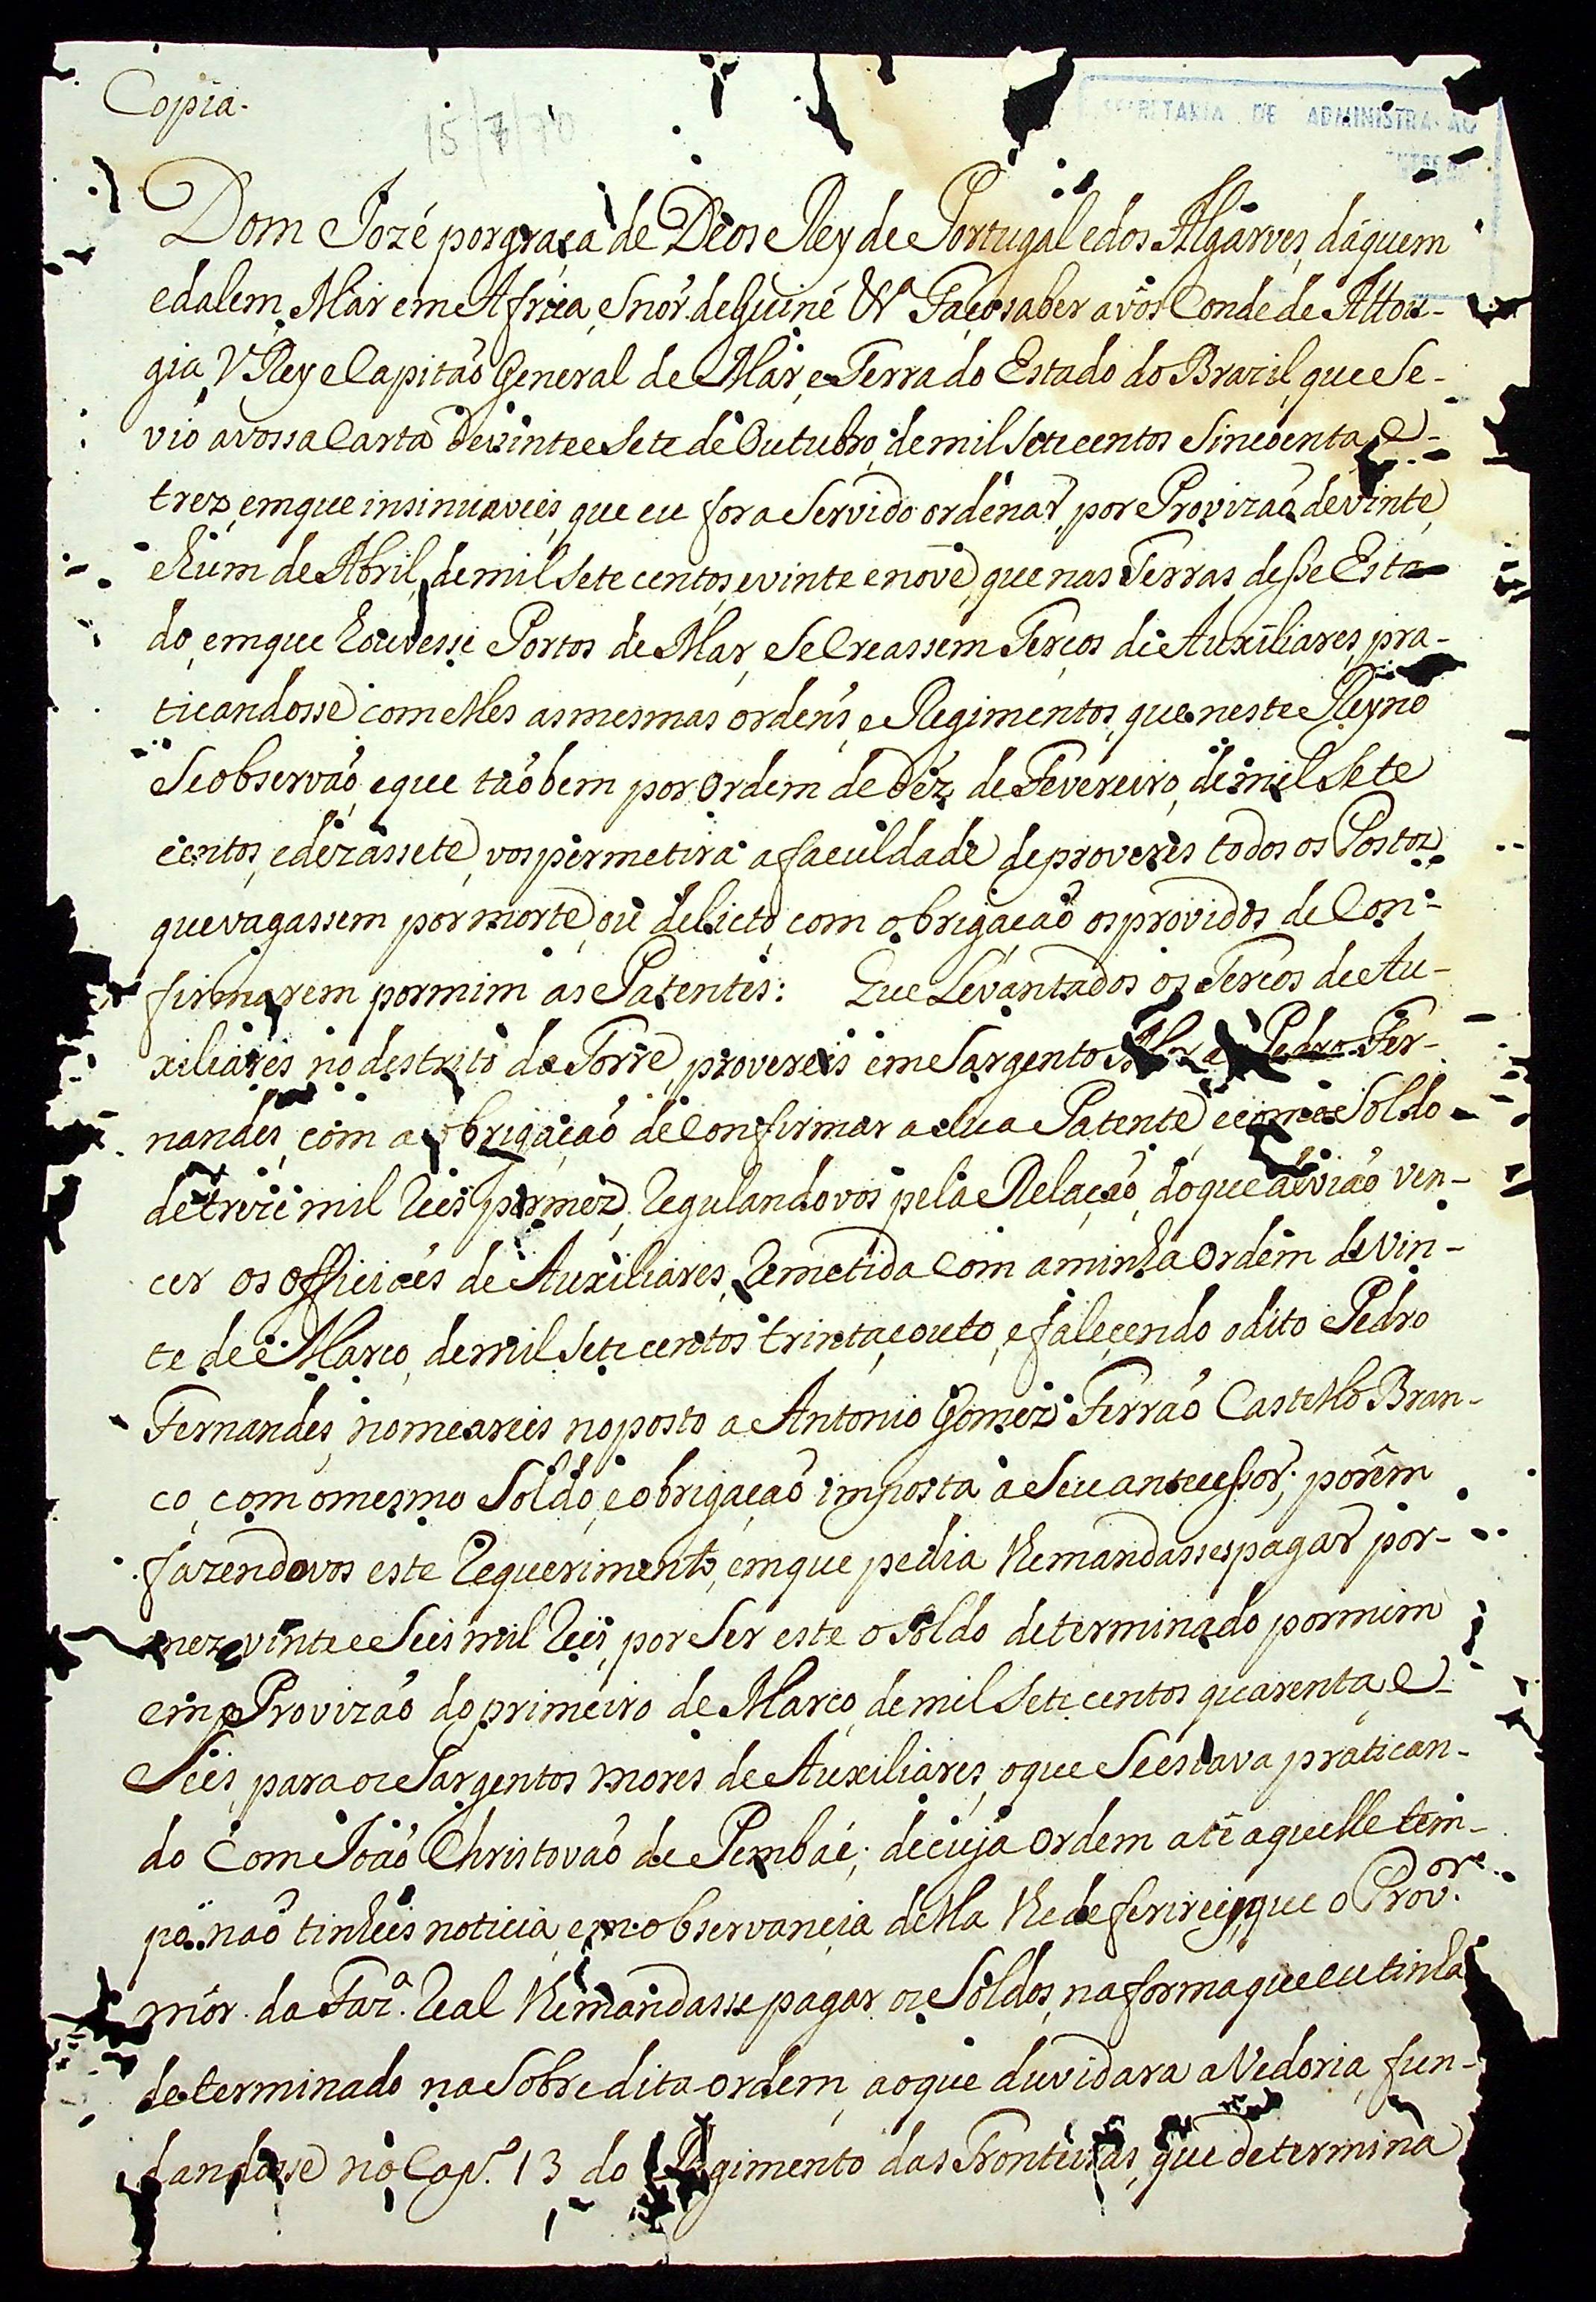 Copia.
15/7/70
SECRETARIA DE ADMINISTRAÇÃO
Dom Jozé por graça de Deos Rey de Portugal e dos Algarves, daquem
e dalem, Mar em Africa, Snór. de Guiné &ª Faço saber a vós Conde de Attou-
gia, V.Rey e Capitaõ General de Mar, e Terra do Estado do Brazil, que Se-
vio a vossa Carta de vinte e Sete de Outubro, de mil Sete centos Sincoenta, e-
trez, em que insinuaveis, que eu fora Servido ordenar, por Provizaõ de vinte,
e hum de Abril, de mil Sete centos, e vinte e nove, que nas Terras desse Esta-
do, em que houvesse Portos de Mar, Se Creassem Terços de Auxiliares, pra-
ticandosse com elles as mesmas ordens, e Regimentos, que neste Reyno
Se observaõ, e que taõ bem por Ordem de déz de Fevereiro, de mil Sete
centos, e dezassete, vos permetira a faculdade de proveres todos os Postoz
que vagassem por morte, ou delicto, com obrigaçaõ os providos de Con-
firmarem por mim as Patentes: Que Levantados os Terços de Au-
xiliares no destrito da Torre, provereis em Sargento Pedro Fer-
nandes, com a obrigaçaõ de Confirmar a Sua Patente, e com o Soldo
de treze mil Reis por mez, Regulandovos pela Relaçaõ, do que aviaõ ven-
cer os Officiaes de Auxiliares, Remetida Com a minha Ordem de Vin-
te de Março, de mil Sete centos trinta, e outo, e falecendo o dito Pedro
Fernandes, nomeareis no posto a Antonio Gomez Ferraõ Castello Bran-
co, com o mesmo Soldo, e obrigaçaõ imposta a Seu antecessor; porêm
fazendovos este Requerimento, em que pedia lhe mandasses pagar por-
mez, vinte e Seis mil Reis, por Ser este o Soldo determinado por mim
em Provizaõ do primeiro de Março, de mil Sete centos quarenta, e-
Seis, para os Sargentos mores de Auxiliares, o que Se estava pratican-
do Com Joaõ Christovaõ de Pembáe; de cuja Ordem atê aquelle tem-
po naõ tinheis noticia, em observancia della lhe deferireis, que o Prov.ᵒʳᵉ
mór. da Faz.ª Real lhe mandasse pagar os Soldos, na forma que eu tinha
determinado na Sobre dita ordem, ao que duvidara a Vedoria, fun-
dandosse no Cap.º 13 do Regimento das Fronteiras, que determina